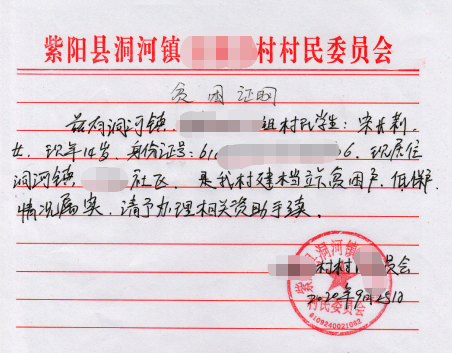 紫阳县洞河镇 村村民委员会
贫困证明
兹有洞河镇 组村民学生:宋
女,现年14岁,身份证号:61 6,现居住
洞河镇 社区,是我村建档立卡贫困户,低保户
情况属实,请予办理相关资助手续。
村村 员会
2020年9月25日
紫阳县洞河镇
村民委员会
6109240021082